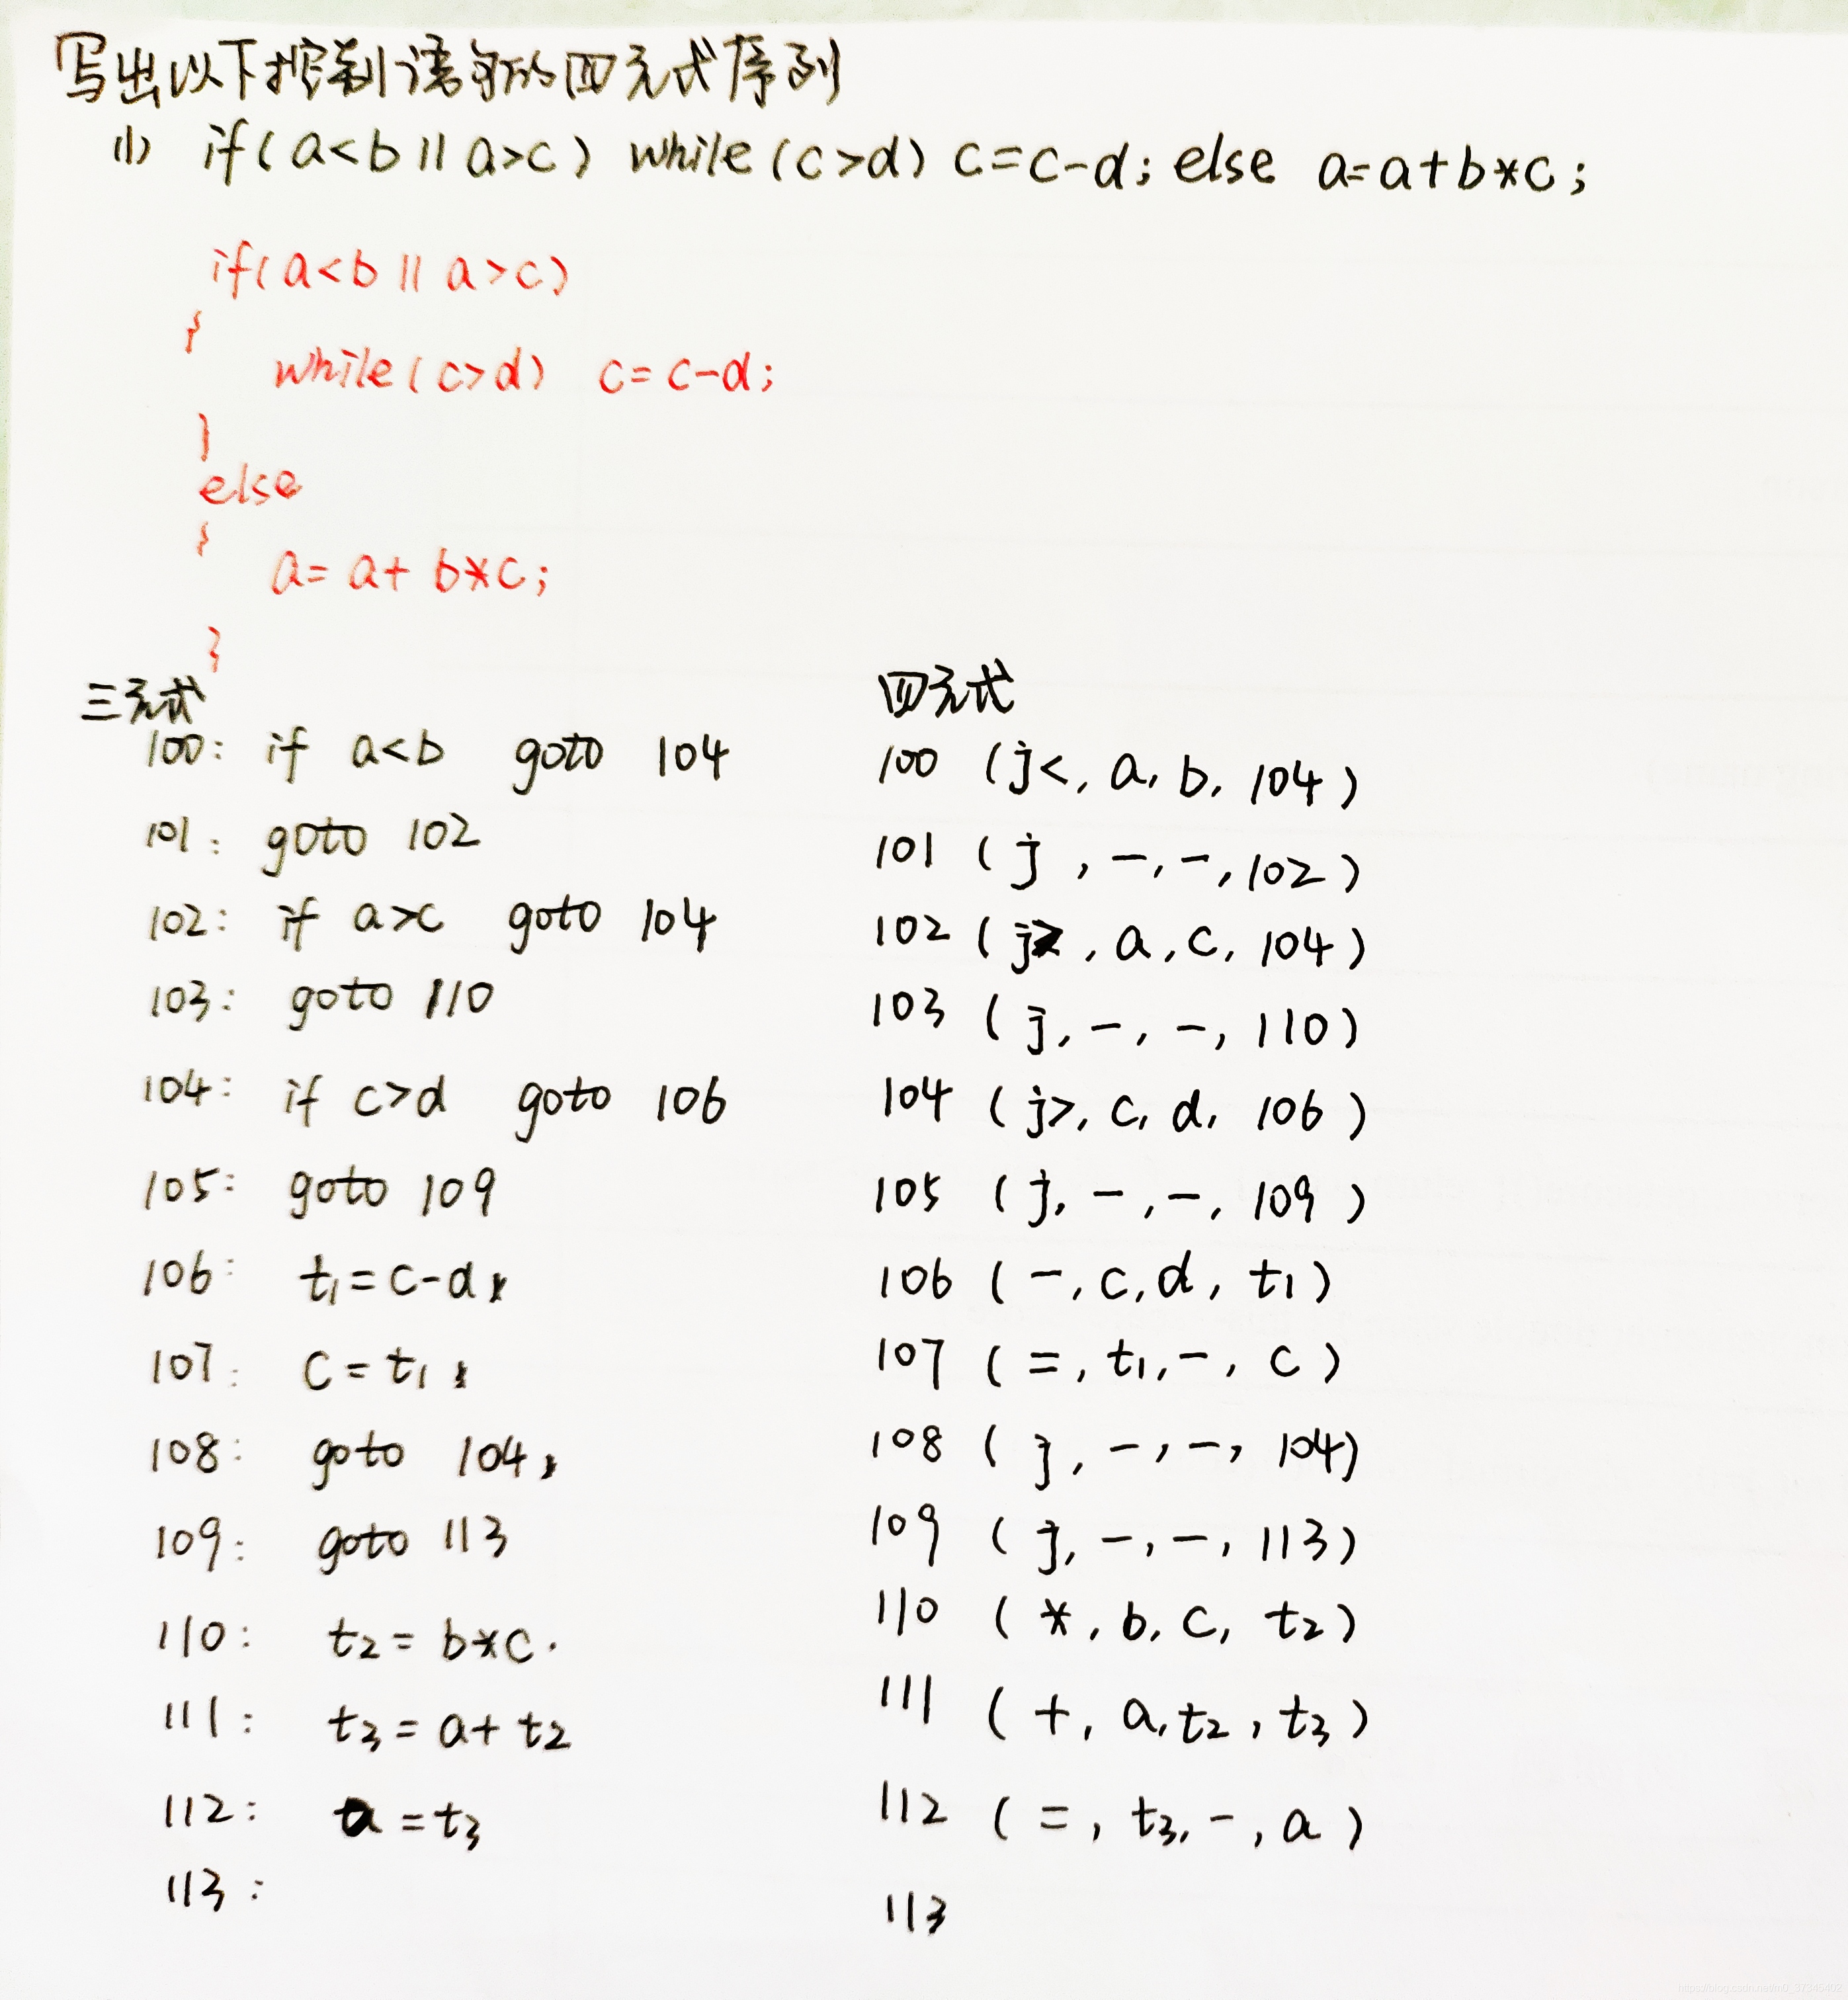 写出以下控制语句的四元式序列
(1) if(a<b || a>c) while(c>d) c=c-d; else a=a+b*c;
if(a<b || a>c)
{
while(c>d) c=c-d;
}
else
{
a=a+b*c;
}
三元式
100: if a<b goto 104
101: goto 102
102: if a>c goto 104
103: goto 110
104: if c>d goto 106
105: goto 109
106: t1=c-d
107: c=t1
108: goto 104
109: goto 113
110: t2=b*c.
111: t3=a+t2
112: a=t3
113:
四元式
100 (j<, a, b, 104)
101 (j, -, -, 102)
102 (j>, a, c, 104)
103 (j, -, -, 110)
104 (j>, c, d, 106)
105 (j, -, -, 109)
106 (-, c, d, t1)
107 (=, t1, -, c)
108 (j, -, -, 104)
109 (j, -, -, 113)
110 (*, b, c, t2)
111 (+, a, t2, t3)
112 (=, t3, -, a)
113